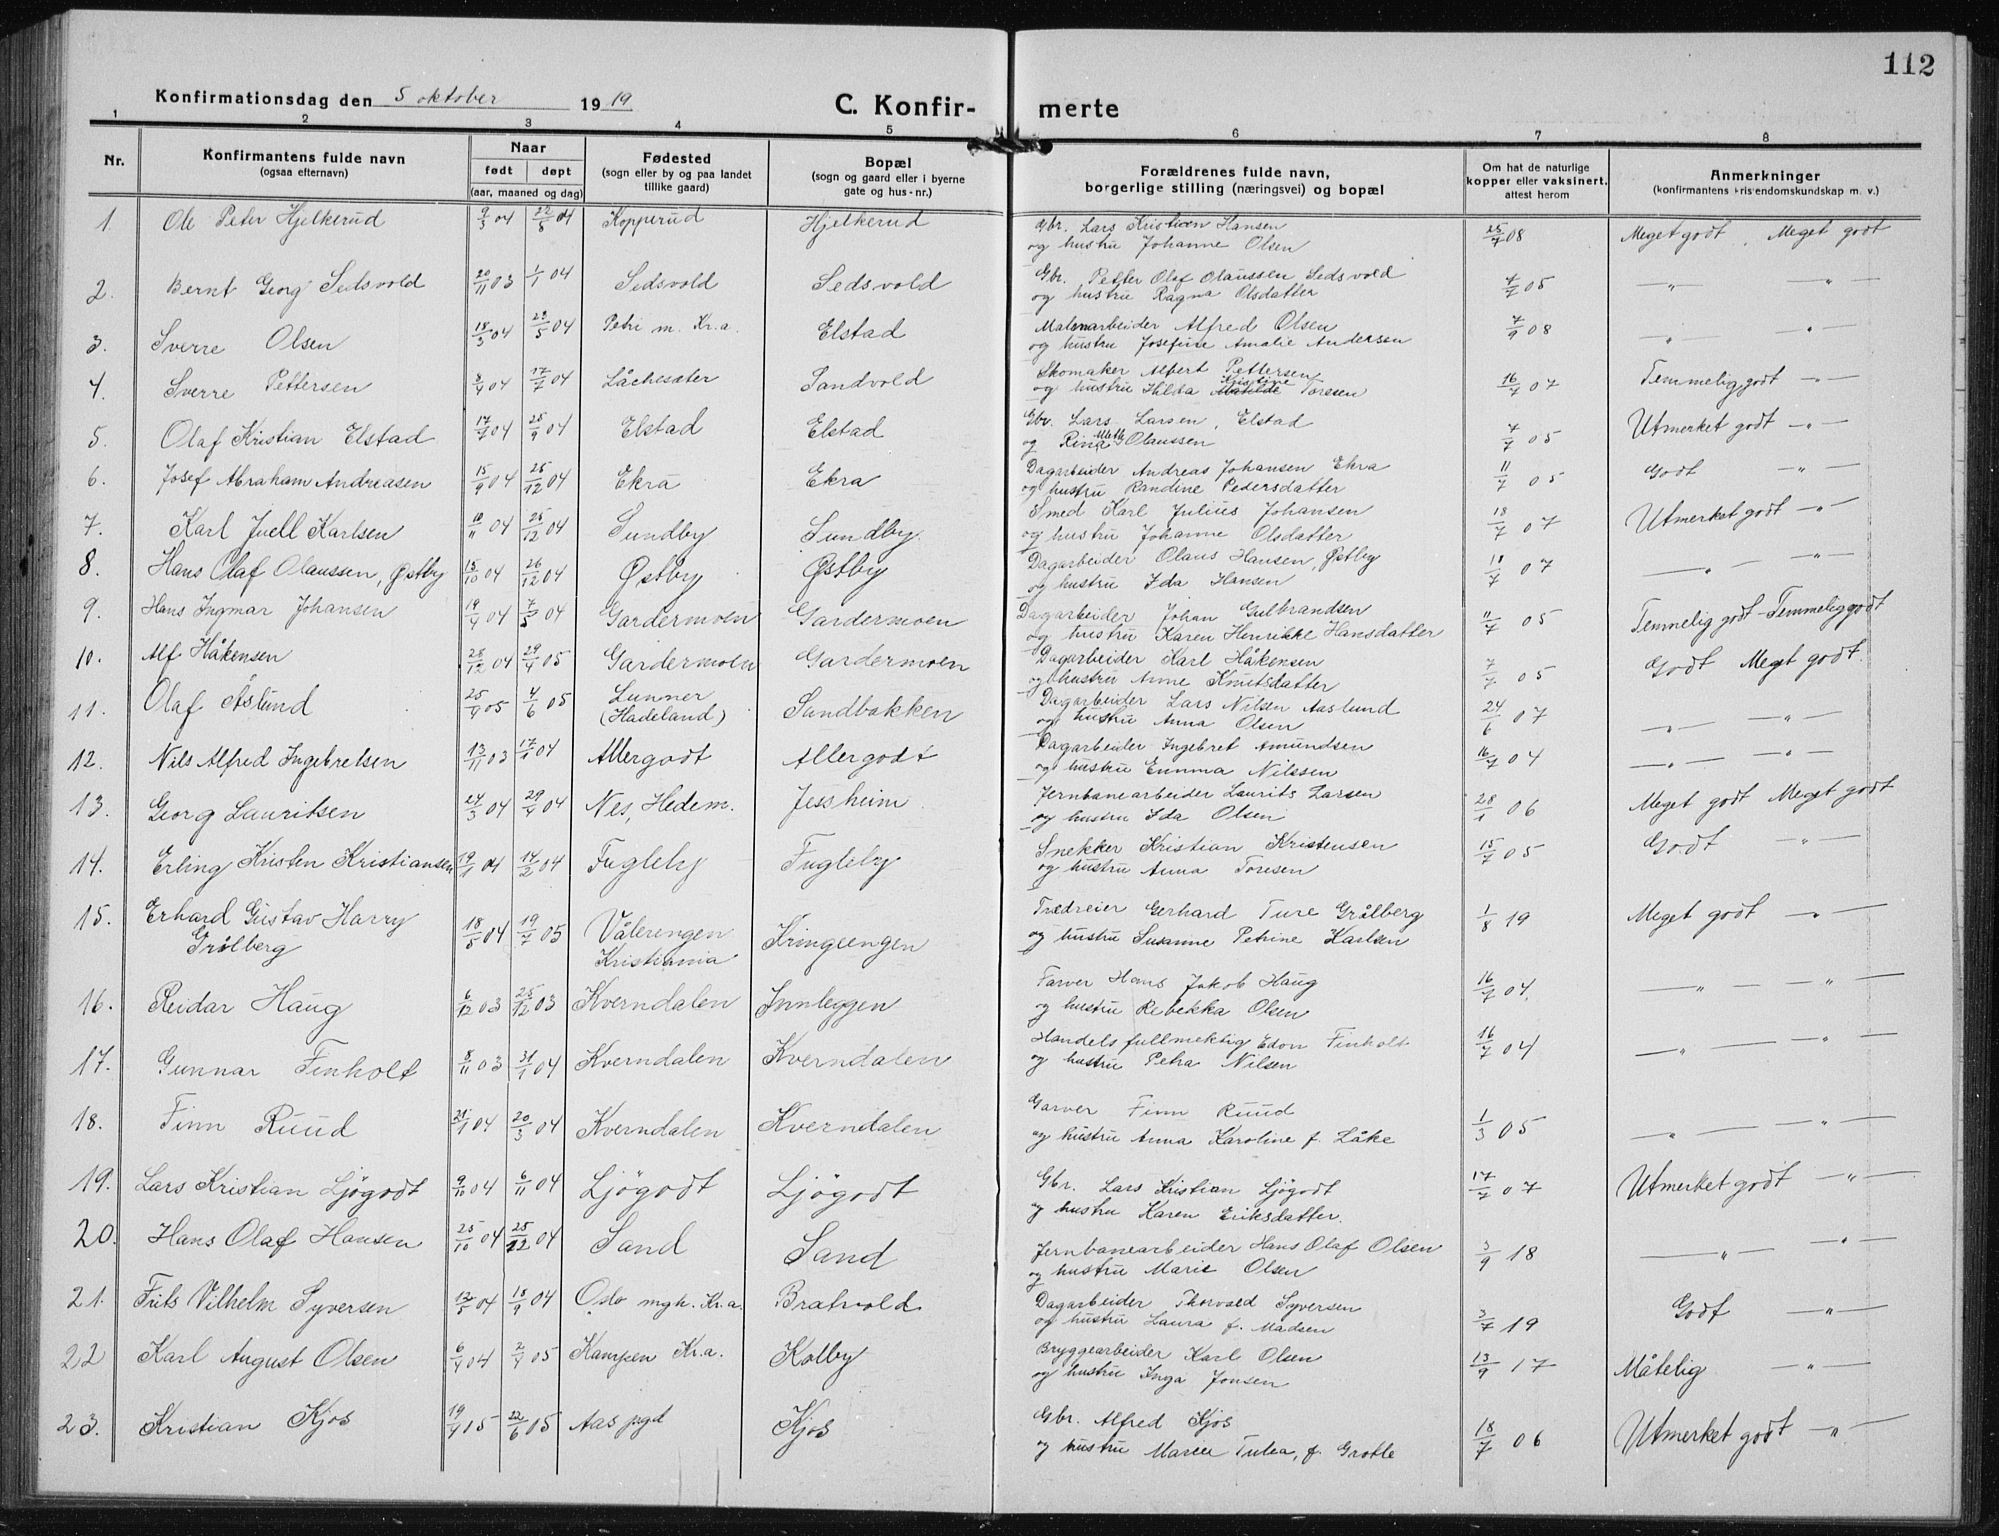 112
Konfirmationsdag den 5 oktober 1919 C. Konfirmerte
1 2 3 4 5 6 7 8
Nr. Konfirmantens fulde navn (ogsaa efternavn) Naar født døpt (aar, maaned og dag) Fødested (sogn eller by og paa landet tillike gaard) Bopæl (sogn og gaard eller i byerne gate og hus-nr.) Forældrenes fulde navn, borgerlige stilling (næringsvei) og bopæl Om hat de naturlige kopper eller vaksinert, attest herom Anmerkninger (konfirmantens kristendomskundskap m. v.)
1. Ole Peter Hjelkerud 9/3 04 22/5 04 Kopperud Hjelkerud Gbr. Lars Kristian Hansen 25/7 08 Meget godt. Meget godt
og hustru Johanne Olsen
2. Bernt Georg Sedsvold 20/11 03 1/1 04 Sedsvold Sedsvold Gbr. Petter Olaf Olaussen Sedsvold 7/7 05 —„— —„—
og hustru Ragna Olsdatter
3. Sverre Olsen 18/3 04 23/5 04 Petri m. Kr.a. Elstad Malerarbeider Alfred Olsen 7/9 08 —„— „
og hustru Josefine Amalie Andersen
4. Sverre Pettersen 8/4 04 17/7 04 Låchesæter Sandvold Skomaker Albert Pettersen 16/7 07 Temmelig godt —„—
og hustru Hilda Matilde Kristine Toresen
5. Olaf Kristian Elstad 17/7 04 25/9 04 Elstad Elstad Gbr. Lars Larsen, Elstad 7/7 05 Utmerket godt —„—
og Rina Mathea Olaussen
6. Josef Abraham Andreasen 15/9 04 25/12 04 Ekra Ekra Dagarbeider Andreas Johansen Ekra 11/7 05 Godt —„—
og hustru Randine Pedersdatter
7. Karl Juell Karlsen 10/11 04 25/12 04 Sundby Sundby Smed Karl Julius Johansen 18/7 07 Utmerket godt —„—
og hustru Johanne Olsdatter
8. Hans Olaf Olaussen, Østby 15/10 04 26/12 04 Østby Østby Dagarbeider Olaus Hansen, Østby 18/7 07 —„— —„—
og hustru Ida Hansen
9. Hans Ingmar Johansen 19/4 04 7/5 04 Gardermoen Gardermoen Dagarbeider Johan Gulbrandsen 11/7 05 Temmelig godt - Temmelig godt
og hustru Karen Henrikke Hansdatter
10. Alf Håkensen 28/12 04 29/4 05 Gardermoen Gardermoen Dagarbeider Karl Håkensen 7/7 05 Godt Meget godt
og hustru Anne Knutsdatter
11. Olaf Åslund 25/4 05 4/6 05 Lunner Sandbakken Dagarbeider Lars Nilsen Aaslund 24/6 07 —„— —„—
(Hadeland) og hustru Anna Olsen
12. Nils Alfred Ingebretsen 13/11 03 17/1 04 Allergodt Allergodt Dagarbeider Ingebret Amundsen 16/7 04 —„— —„—
og hustru Emma Nilssen
13. Georg Lauritsen 24/3 04 29/4 04 Nes, Hedem. Jessheim Jernbanearbeider Laurits Larsen 28/1 06 Meget godt Meget godt
og hustru Ida Olsen
14. Erling Kristen Kristiansen 19/1 04 14/2 04 Fugleby Fugleby Snekker Kristian Kristensen 15/7 05 Godt —„—
og hustru Anna Toresen
15. Erhard Gustav Harry 18/5 04 19/7 05 Vålerengen Kringeengen Trædreier Gerhard Ture Grålberg 1/8 19 Meget godt —„—
Grålberg Kristiania og hustru Susanne Petrine Karlsen
16. Reidar Haug 6/12 03 25/12 03 Kverndalen Innleggen Farver Hans Jakob Haug 16/7 04. —„— —„—
og hustru Rebekka Olsen
17. Gunnar Finholt 8/11 03 31/1 04 Kverndalen Kverndalen Handelsfullmektig Edon Finholt 16/7 04 —„— —„—
og hustru Petra Nilsen
18. Finn Ruud 21/1 04 20/3 04 Kverndalen Kverndalen Garver Finn Ruud 1/3 05 —„— —„—
og hustru Anna Karoline f. Låke
19. Lars Kristian Ljøgodt 9/10 04 6/11 04 Ljøgodt Ljøgodt Gbr. Lars Kristian Ljøgodt 17/7 07 Utmerket godt —„—
og hustru Karen Eriksdatter.
20. Hans Olaf Hansen 25/10 04 25/12 04 Sand Sand Jernbanearbeider Hans Olaf Olsen 3/9 18 —„— —„—
og hustru Marie Olsen
21. Frits Vilhelm Syversen 12/5 04 18/9 04 Oslo mgh. Kr.a. Bratvold Dagarbeider Thorvald Syversen 3/7 19 Godt —„—
og hustru Laura f. Madsen
22 Karl August Olsen 6/4 04 2/4 05 Kampen Kr.a. Kolby Bryggearbeider Karl Olsen 13/9 17 Måtelig —„—
og hustru Inga Jonsen
23. Kristian Kjos 19/4 05 22/6 05 Aas pgd Kjos Gbr. Alfred Kjos 18/7 06 Utmerket godt —„—
og hustru Maren Tulea, f. Grotle